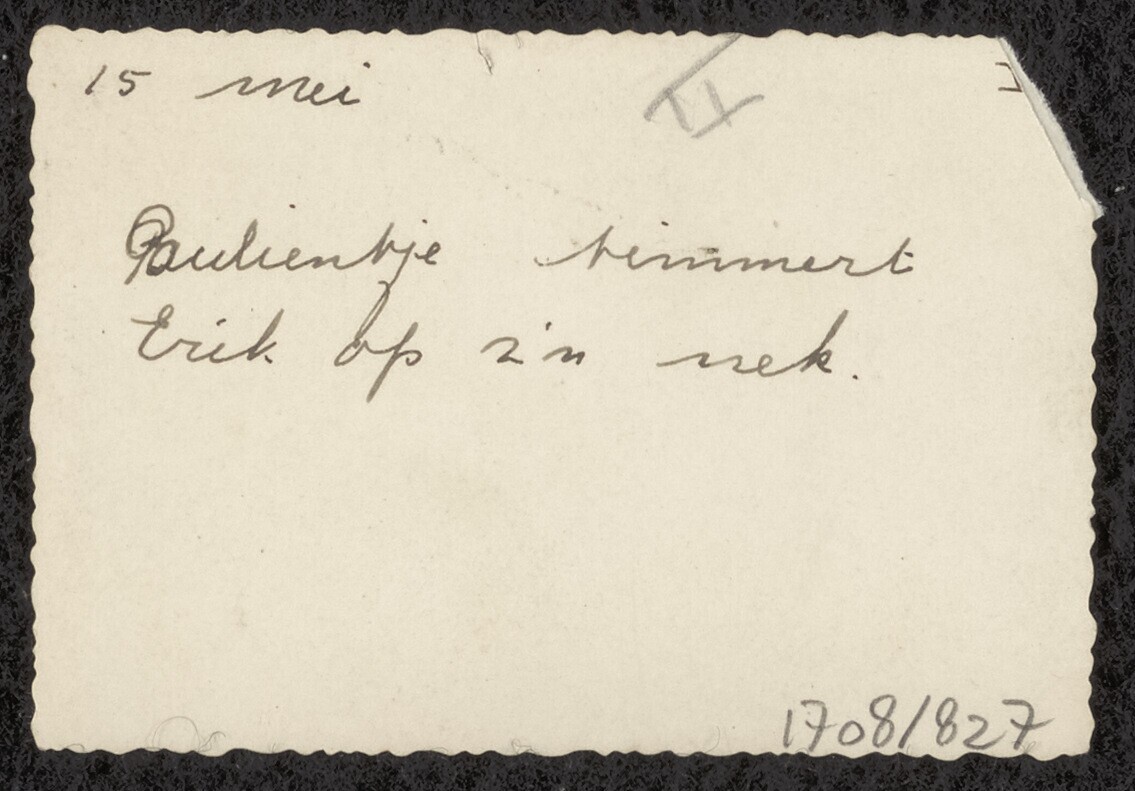 15 mei
Paulientje timmert
Erik op z'n nek.
1708/827